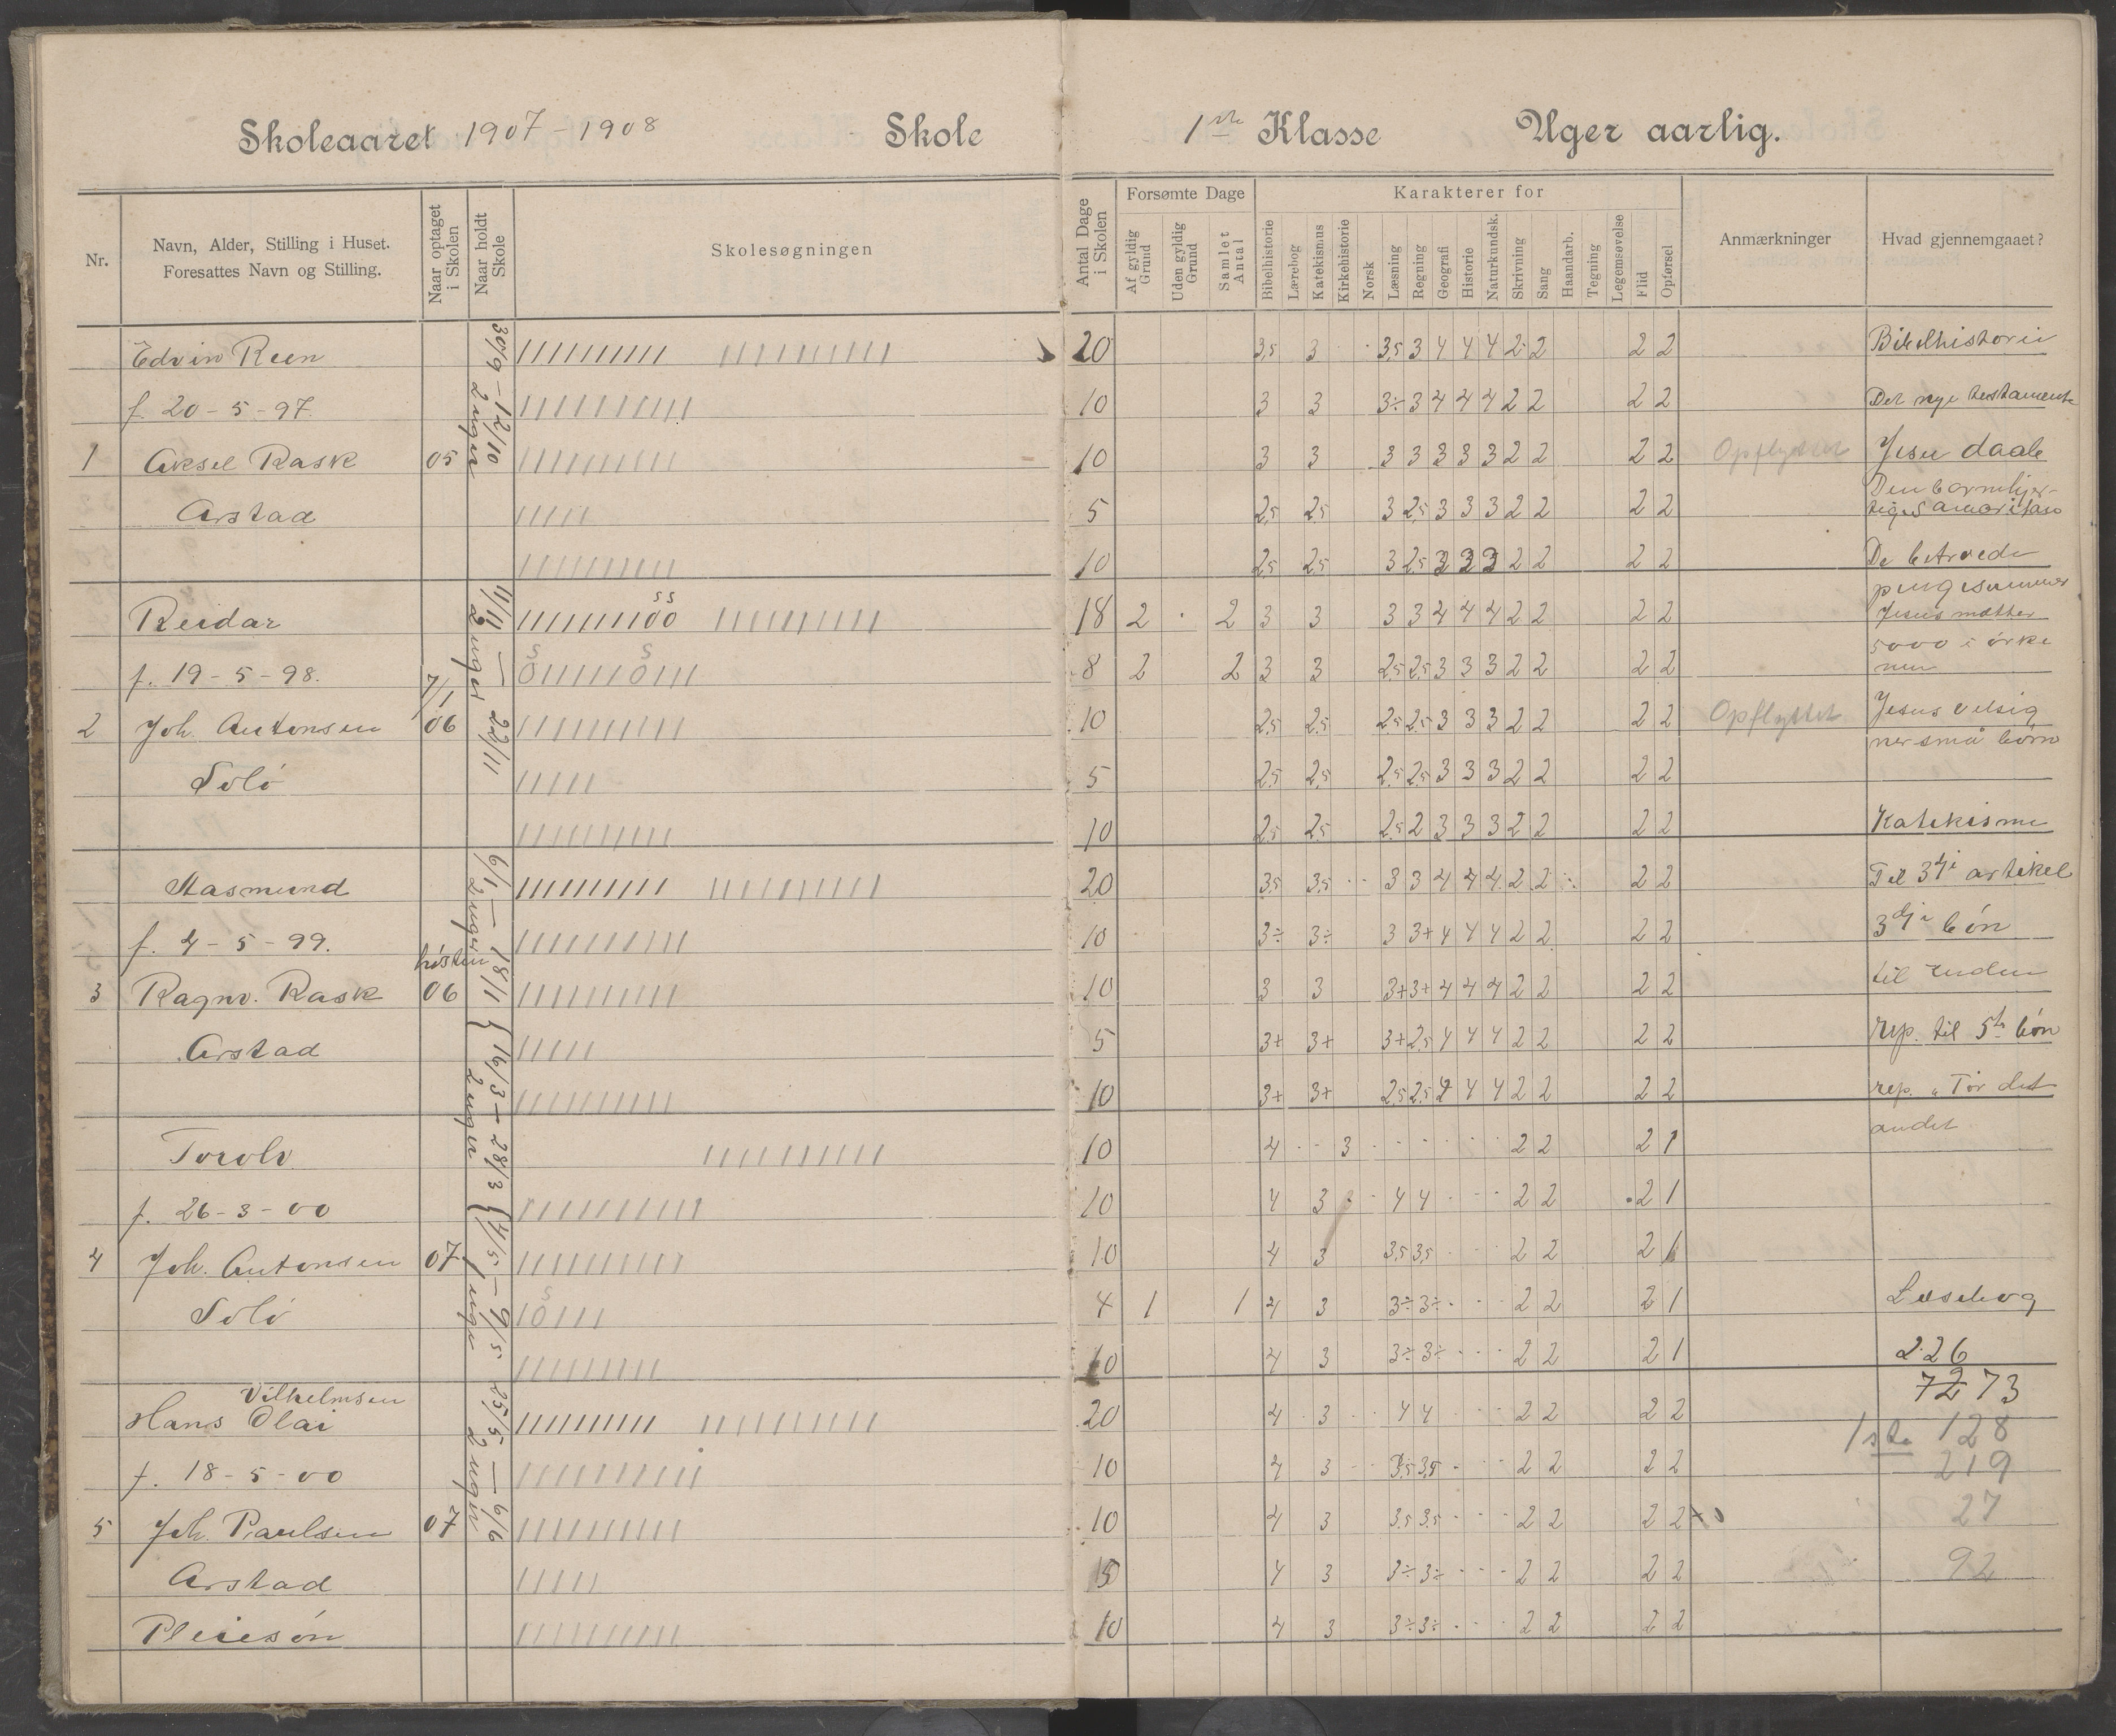 Skoleaaret 1907-1908 Skole 1ste Klasse Uger aarlig.
Nr. Navn, Alder, Stilling i Huset. Foresattes Navn og Stilling. Naar optaget i Skolen Naar holdt Skole Skolesøgningen Antal Dage i Skolen Forsømte Dage Karakterer for Anmærkninger Hvad gjennemgaaet?
Af gyldig Grund Uden gyldig Grund Samlet Antal Bibelhistorie Lærebog Katekismus Kirkehistorie Norsk Læsning Regning Geografi Historie Naturkundsk. Skrivning Sang Haandarb. Tegning Legemsøvelse Flid Opførsel
30/9 - 12/10 2 uger
11/11 - 22/11 2 uger
6/1 - 18/1 2 uger
16/3 - 28/3 2 uger
4/5 - 9/5 1 uge
25/5 - 6/6 2 uger
Edvin Reen ////////// ////////// 20 3,5 3 3,5 3 4 4 4 2 2 2 2 Bibelhistorie
f. 20-5-97. ////////// 10 3 3 3÷ 3 4 4 4 2 2 2 2 Det nye testamente
1 Aksel Rask 05 ////////// 10 3 3 3 3 3 3 3 2 2 2 2 Opflyttet Jesu daab
Arstad ///// 5 2,5 2,5 3 2,5 3 3 3 2 2 2 2 Den barmhjer-
tige Samaritan
////////// 10 2,5 2,5 3 2,5 3 3 3 2 2 2 2 De betroede
pengesummer
Reidar ////////00 ss ////////// 18 2 . 2 3 3 3 3 4 4 4 2 2 2 2 Jesus mætter
5000 i ørke
f. 19-5-98. 0/////0/// s s 8 2 2 3 3 2,5 2,5 3 3 3 2 2 2 2 nen
2 Joh. Antonsen 7/1 06 ////////// 10 2,5 2,5 2,5 2,5 3 3 3 2 2 2 2 Opflyttet Jesus velsig
ner små børn
Solö ///// 5 2,5 2,5 2,5 2,5 3 3 3 2 2 2 2
////////// 10 2,5 2,5 2,5 2 3 3 3 2 2 2 2 Katekisme
Aasmund ////////// ////////// 20 3,5 3,5 3 3 4 4 4 2 2 2 2 Til 3dje artikel
f. 4-5-99. ////////// 10 3÷ 3÷ 3 3+ 4 4 4 2 2 2 2 3dje bön
3 Ragnv. Rask hösten 06 ////////// 10 3 3 3+ 3+ 4 4 4 2 2 2 2 til enden
Arstad ///// 5 3+ 3+ 3+ 2,5 4 4 4 2 2 2 2 rep. til 5te bön
////////// 10 3+ 3+ 2,5 2,5 4 4 4 2 2 2 2 rep. "For det
andet
Torolv ////////// 10 4 3 2 2 2 1
f. 26-3-00 ////////// 10 4 3 4 4 2 2 2 1
4 Joh. Antonsen 07 ////////// 10 4 3 3,5 3,5 2 2 2 1
Solö /0/// s 4 1 1 4 3 3÷ 3÷ 2 2 2 1 Læsebog
////////// 10 4 3 3÷ 3÷ 2 2 2 1 2.26
72 73
Vilhelmsen
Hans Olai ////////// ////////// 20 4 3 4 4 2 2 2 2 1ste 128
f. 18-5-00 ////////// 10 4 3 3,5 3,5 2 2 2 2 219
5 Joh. Paulsen 07 ////////// 10 4 3 3,5 3,5 2 2 2 2 27
Arstad ///// 5 4 3 3÷ 3÷ 2 2 2 2 92
Pleiesön ////////// 10 4 3 3÷ 3÷ 2 2 2 2